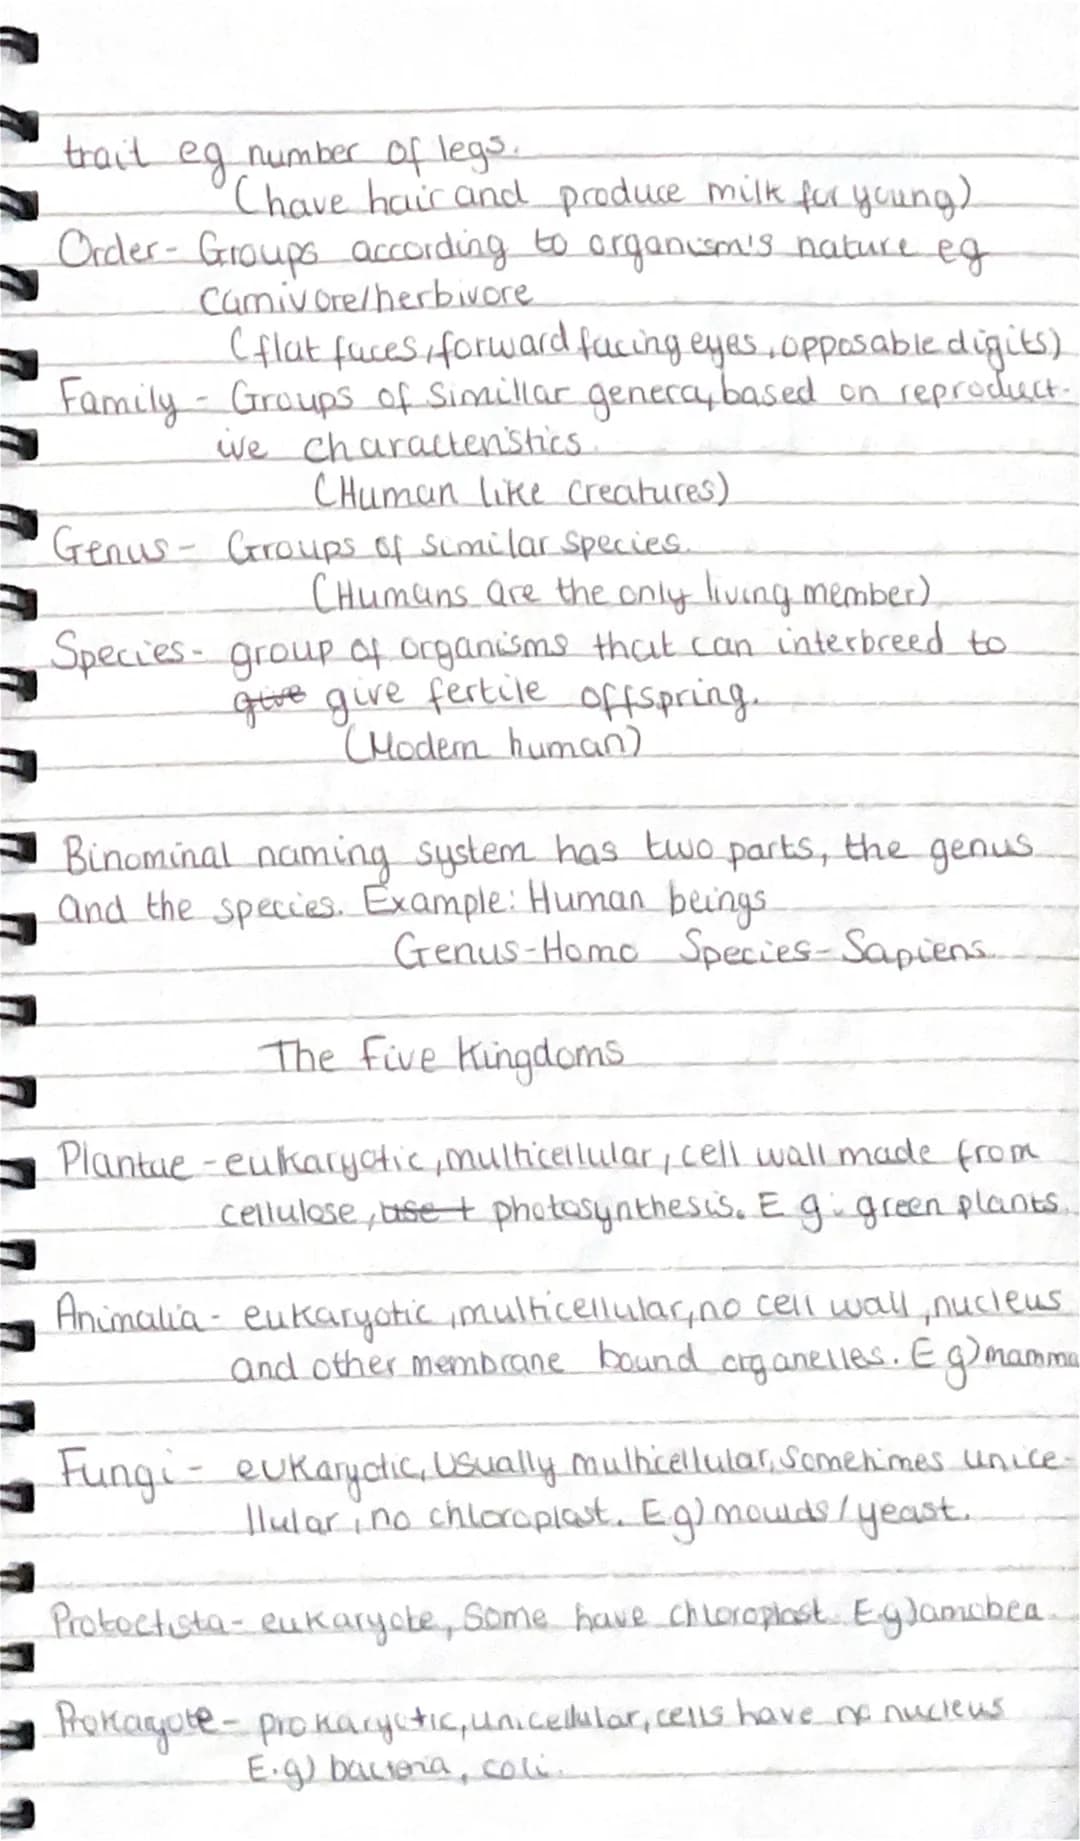 trait eg number of legs.
(have hair and produce milk for young)
Order - Groups according to organism's nature eg
carnivore/herbivore
(flat faces, forward facing eyes, opposable digits)
Family - Groups of simillar genera, based on reproduct-
ive characteristics.
(Human like creatures)
Genus - Groups of similar species.
(Humans are the only living member)
Species - group of organisms that can interbreed to
give give fertile offspring.
(Modern human)
Binominal naming system has two parts, the genus
and the species. Example: Human beings
Genus-Homo Species-Sapiens.
The Five Kingdoms
Plantae - eukaryotic, multicellular, cell wall made from
cellulose, use t photosynthesis. E g: green plants.
Animalia - eukaryotic, multicellular, no cell wall, nucleus
and other membrane bound organelles. E g) mamma
Fungi - eukaryotic, usually multicellular, sometimes unice-
llular, no chloroplast. E.g) moulds/yeast.
Protoctista - eukaryote, some have chloroplast. E.g) amobea.
Prokayote - prokaryotic, unicellular, cells have no nucleus
E.g) bacteria, coli.